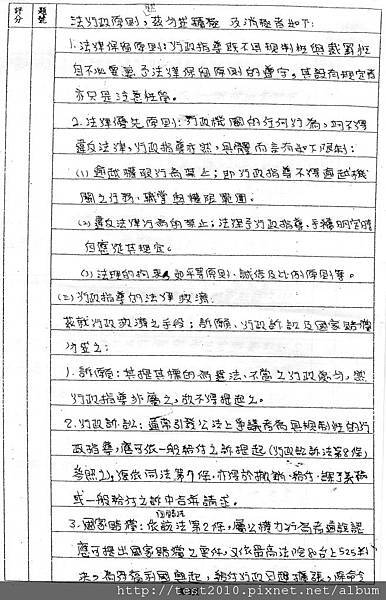 評分
題號
法行政原則,茲分述積極 及消極者如下:
1. 法律保留原則:行政指導既不具規制性與裁罰性
自不必嚴守法律保留原則的遵守,其設有規定者
亦只是注意性質。
2. 法律優先原則:行政機關的任何行為,均不得
違反法律,行政指導亦然,具體而言有如下限制:
(1) 逾越權限行為禁止:即行政指導不得逾越機
關之行務、職掌與權限範圍。
(2) 違反法律行為的禁止:法律對行政指導、手續明定時
但應從其規定。
(3) 法理的拘束,如平等原則、誠信及比例原則等。
(二) 行政指導的法律救濟
茲就行政救濟之手段:訴願、行政訴訟及國家賠償
分述之:
1. 訴願:其提其標的為違法、不當之行政處分,然
行政指導非屬之,故不得提起之。
2. 行政訴訟:通常引發公法上爭議者為具規制性的行
政指導,應可依一般給付之訴提起(行政訴訟法第8條
參照),復依同法第7條,亦得於撤銷、給付、
或一般給付之訴中合併請求。
3. 國家賠償:依該法第2條,屬公權力行為者通說認
應可提出國家賠償之要件,又依最高法院80台上525判
決,為
http://test2010.pixnet.net/album